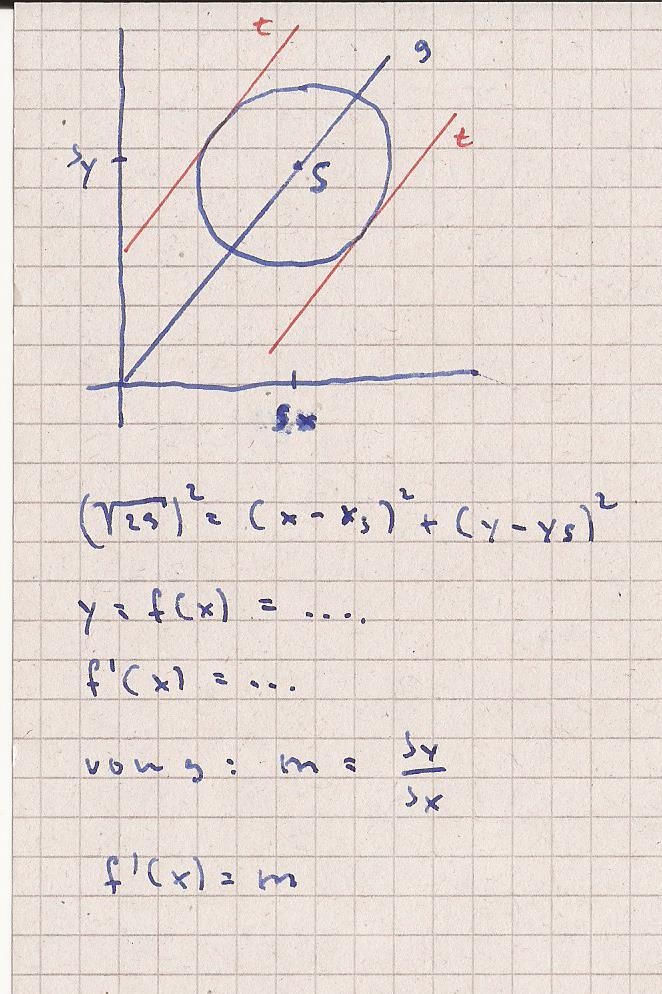 t
g
t
sy
S
sx
(√25)² = (x - xs)² + (y - ys)²
y = f(x) = ....
f'(x) = ...
von g: m = sy/sx
f'(x) = m